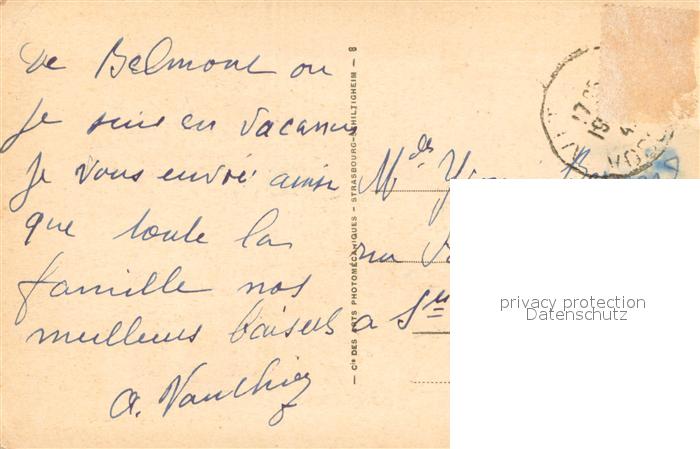 De Belmont ou
je suis en vacances
je vous envoie ainsi
que toute la
famille nos
meilleurs baisers
a. Vauthier
— Cie DES ARTS PHOTOMÉCANIQUES - STRASBOURG-SCHILTIGHEIM — 8
Mdes
rue
a Ste
17
19
privacy protection
Datenschutz